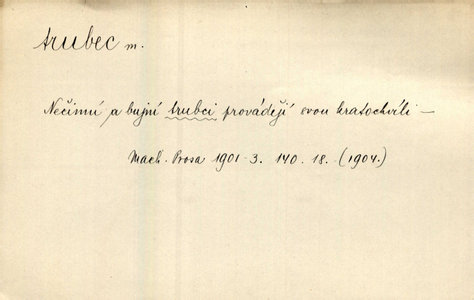 trubec m.
Nečinní a bujní trubci provádějí svou kratochvíli —
Mach. Prosa 1901-3. 140. 18. (1904.)